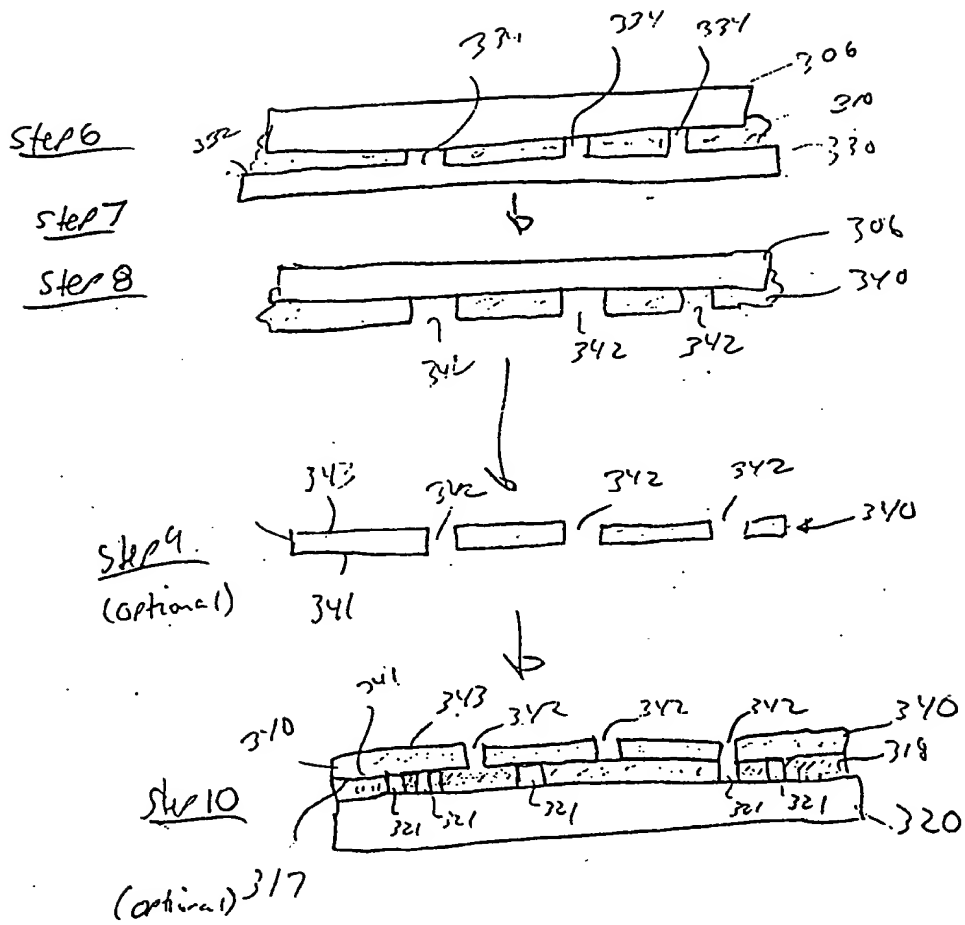 334 334 334
306
Step 6 332 310
330
Step 7
Step 8 306
340
342 342 342
343 342 342 342
Step 9 340
(optional) 341
341 343 342 342 342 340
310 318
Step 10 321 321 321 321 321 320
(optional) 317